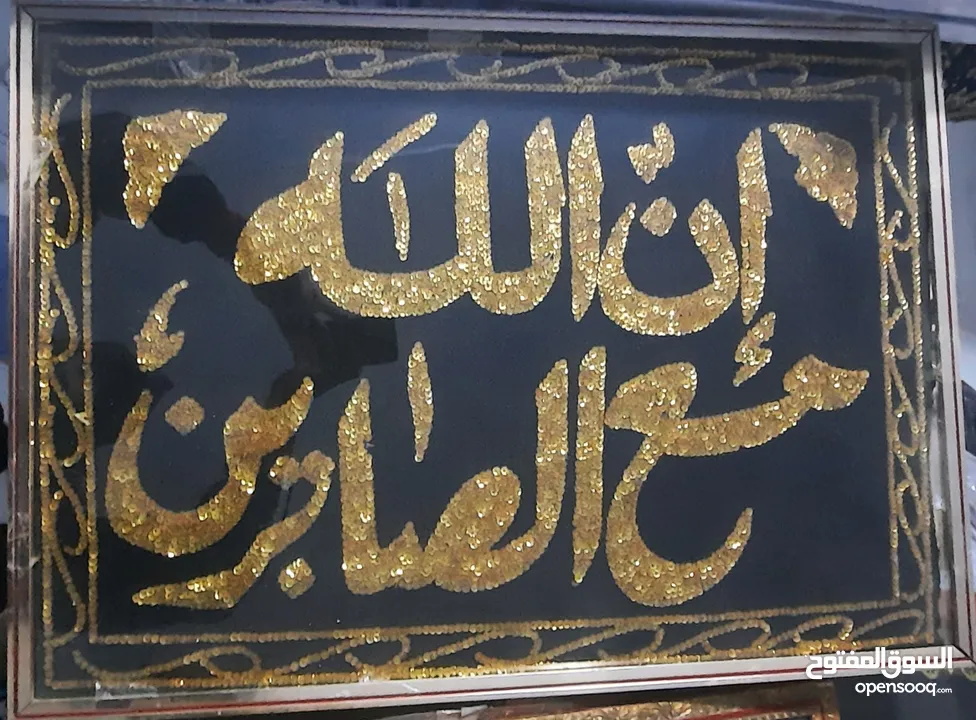 إنّ اللَه
مَع الصابرينَ
السوق المفتوح
opensooq.com